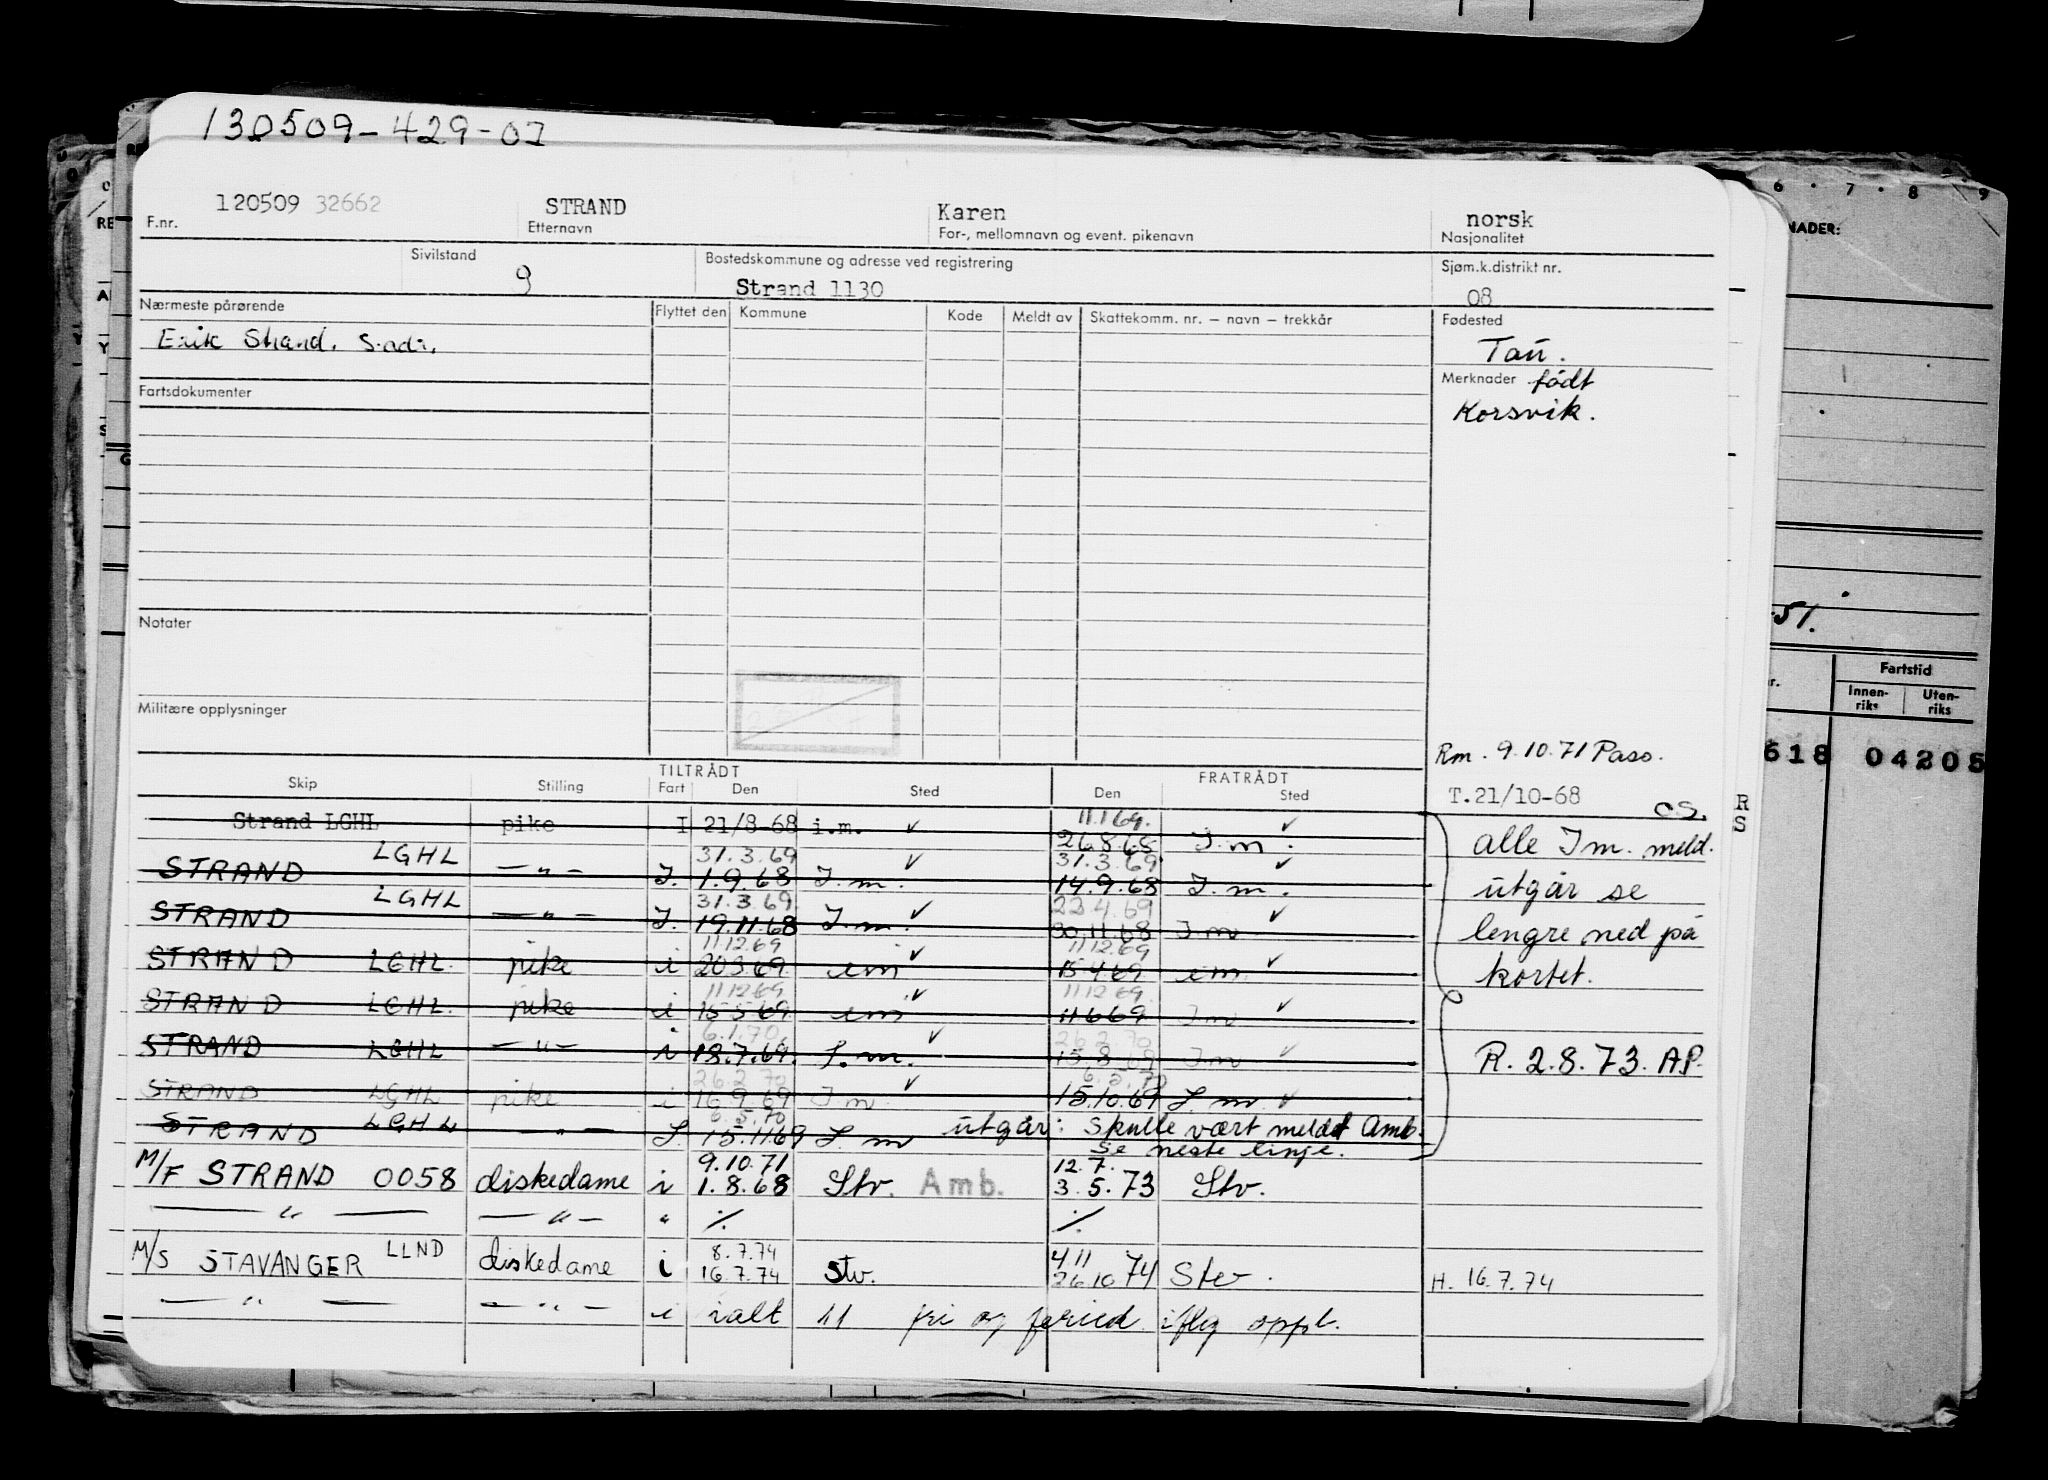 130509-429-01
120509 32662 STRAND Karen norsk
F.nr. Etternavn For-, mellomnavn og event. pikenavn Nasjonalitet
Sivilstand Bostedskommune og adresse ved registrering Sjøm.k.distrikt nr.
9 Strand 1130 08
Nærmeste pårørende Flyttet den Kommune Kode Meldt av Skattekomm. nr. – navn – trekkår Fødested
Erik Strand. Tau.
Fartsdokumenter Merknader født
Korsvik.
Notater
Militære opplysninger
Rm. 9.10.71 Pass.
T.21/10-68 CS.
TILTRÅDT FRATRÅDT
Skip Stilling Fart Den Sted Den Sted
11.1.69.
Strand LGHL pike I 21/8-68 i.m. ✓ 26.8.68 I.m. ✓
alle I m. meld.
31.3.69 31.3.69
STRAND LGHL — " — I. 1.9.68 I.m. ✓ 14.9.68 I.m. ✓
utgår se
31.3.69 22.4.69
STRAND LGHL — " — I. 19.11.68 I.m. ✓ 30.11.68 I.m ✓
lengre ned på
11.12.69 11.12.69
STRAND LGHL. pike i 20.3.69 im ✓ 15.4.69 im. ✓
kortet.
11.12.69 11.12.69.
STRAND LGHL. pike i 15.5.69 im ✓ 11.6.69 I.m ✓
6.1.70. 26.2.70
STRAND LGHL — " — i 18.7.69. I.m. ✓ 15.8.69 I.m ✓
R. 2.8.73. A.P.
26.2.70 6.5.70
STRAND LGHL pike i 16.9.69 I.m. ✓ 15.10.69 I.m ✓
6.5.70
STRAND LGHL — " — I. 15.11.69 I.m utgår: Skulle vært meldt Amb.
Se neste linje.
9.10.71 12.7.
M/F STRAND 0058 diskedame i 1.8.68 Stv. Amb. 3.5.73 Stv.
— " — — " — " ⁒ ⁒
8.7.74 4.11
M/S STAVANGER LLND diskedame i 16.7.74 Stv. 26.10 74 Stv.
H. 16.7.74
— " — — " — i ialt 11 fri og feried. iflg oppl.
6 · 7 · 8 · 9
NADER:
51.
Fartstid
Innen-riks Uten-riks
618 04205
R
S